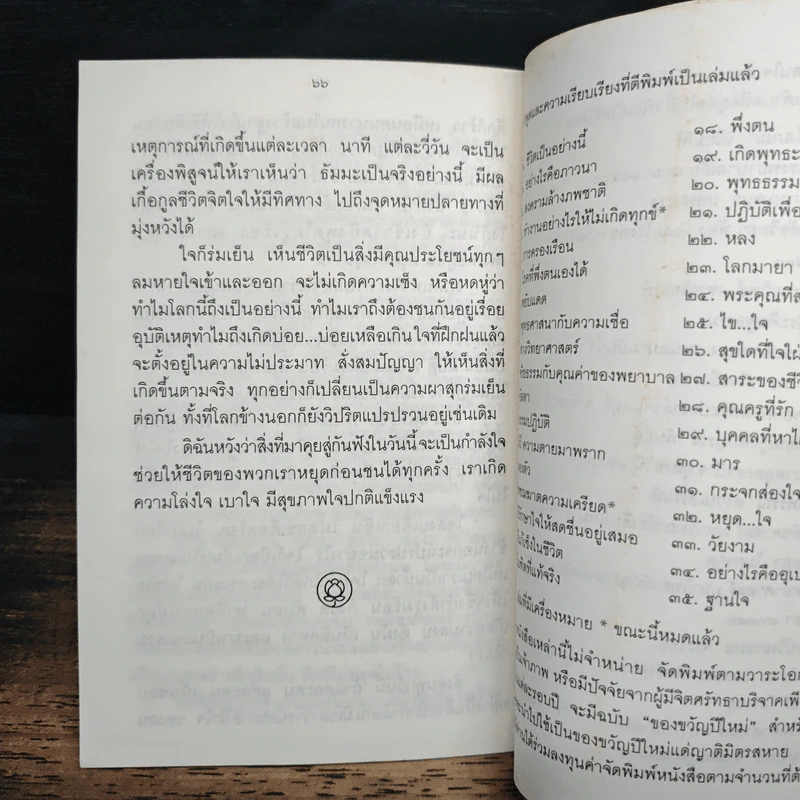 ๖๖
เหตุการณ์ที่เกิดขึ้นแต่ละเวลา นาที แต่ละวี่วัน จะเป็น
เครื่องพิสูจน์ให้เราเห็นว่า ธัมมะเป็นจริงอย่างนี้ มีผล
เกื้อกูลชีวิตจิตใจให้มีทิศทาง ไปถึงจุดหมายปลายทางที่
มุ่งหวังได้
ใจก็ร่มเย็น เห็นชีวิตเป็นสิ่งมีคุณประโยชน์ทุกๆ
ลมหายใจเข้าและออก จะไม่เกิดความเซ็ง หรือหดหู่ว่า
ทำไมโลกนี้ถึงเป็นอย่างนี้ ทำไมเราถึงต้องชนกันอยู่เรื่อย
อุบัติเหตุทำไมถึงเกิดบ่อย...บ่อยเหลือเกินใจที่ฝึกฝนแล้ว
จะตั้งอยู่ในความไม่ประมาท สั่งสมปัญญา ให้เห็นสิ่งที่
เกิดขึ้นตามจริง ทุกอย่างก็เปลี่ยนเป็นความผาสุกร่มเย็น
ต่อกัน ทั้งที่โลกข้างนอกก็ยังวิปริตแปรปรวนอยู่เช่นเดิม
ดิฉันหวังว่าสิ่งที่มาคุยสู่กันฟังในวันนี้จะเป็นกำลังใจ
ช่วยให้ชีวิตของพวกเราหยุดก่อนชนได้ทุกครั้ง เราเกิด
ความโล่งใจ เบาใจ มีสุขภาพใจปกติแข็งแรง
และความเรียบเรียงที่ตีพิมพ์เป็นเล่มแล้ว
ชีวิตเป็นอย่างนี้
อย่างไรคือภาวนา
สงครามล้างภพชาติ
ทำงานอย่างไรให้ไม่เกิดทุกข์*
การครองเรือน
โชคที่พึ่งตนเองได้
พุทธศาสนากับความเชื่อ
ทางวิทยาศาสตร์
ธรรมกับคุณค่าของพยาบาล
ธรรมปฏิบัติ
ความตายมาพราก
ความเครียด*
รักษาใจให้สดชื่นอยู่เสมอ
ในชีวิต
ที่แท้จริง
๑๘. พึ่งตน
๑๙. เกิดพุทธะ
๒๐. พุทธธรรม
๒๑. ปฏิบัติเพื่อ
๒๒. หลง
๒๓. โลกมายา
๒๔. พระคุณที่
๒๕. ไข...ใจ
๒๖. สุขใดที่ใจ
๒๗. สาระของ
๒๘. คุณครูที่รัก
๒๙. บุคคลที่หา
๓๐. มาร
๓๑. กระจกส่องใจ
๓๒. หยุด...ใจ
๓๓. วัยงาม
๓๔. อย่างไรคือ
๓๕. ฐานใจ
ที่มีเครื่องหมาย * ขณะนี้หมดแล้ว
หนังสือเหล่านี้ไม่จำหน่าย จัดพิมพ์ตามวาระ
เจ้าภาพ หรือมีปัจจัยจากผู้มีจิตศรัทธาบริจาค
แต่ละรอบปี จะมีฉบับ "ของขวัญปีใหม่"
นำไปใช้เป็นของขวัญปีใหม่แด่ญาติมิตรสหาย
ได้ร่วมลงทุนค่าจัดพิมพ์หนังสือตามจำนวนที่